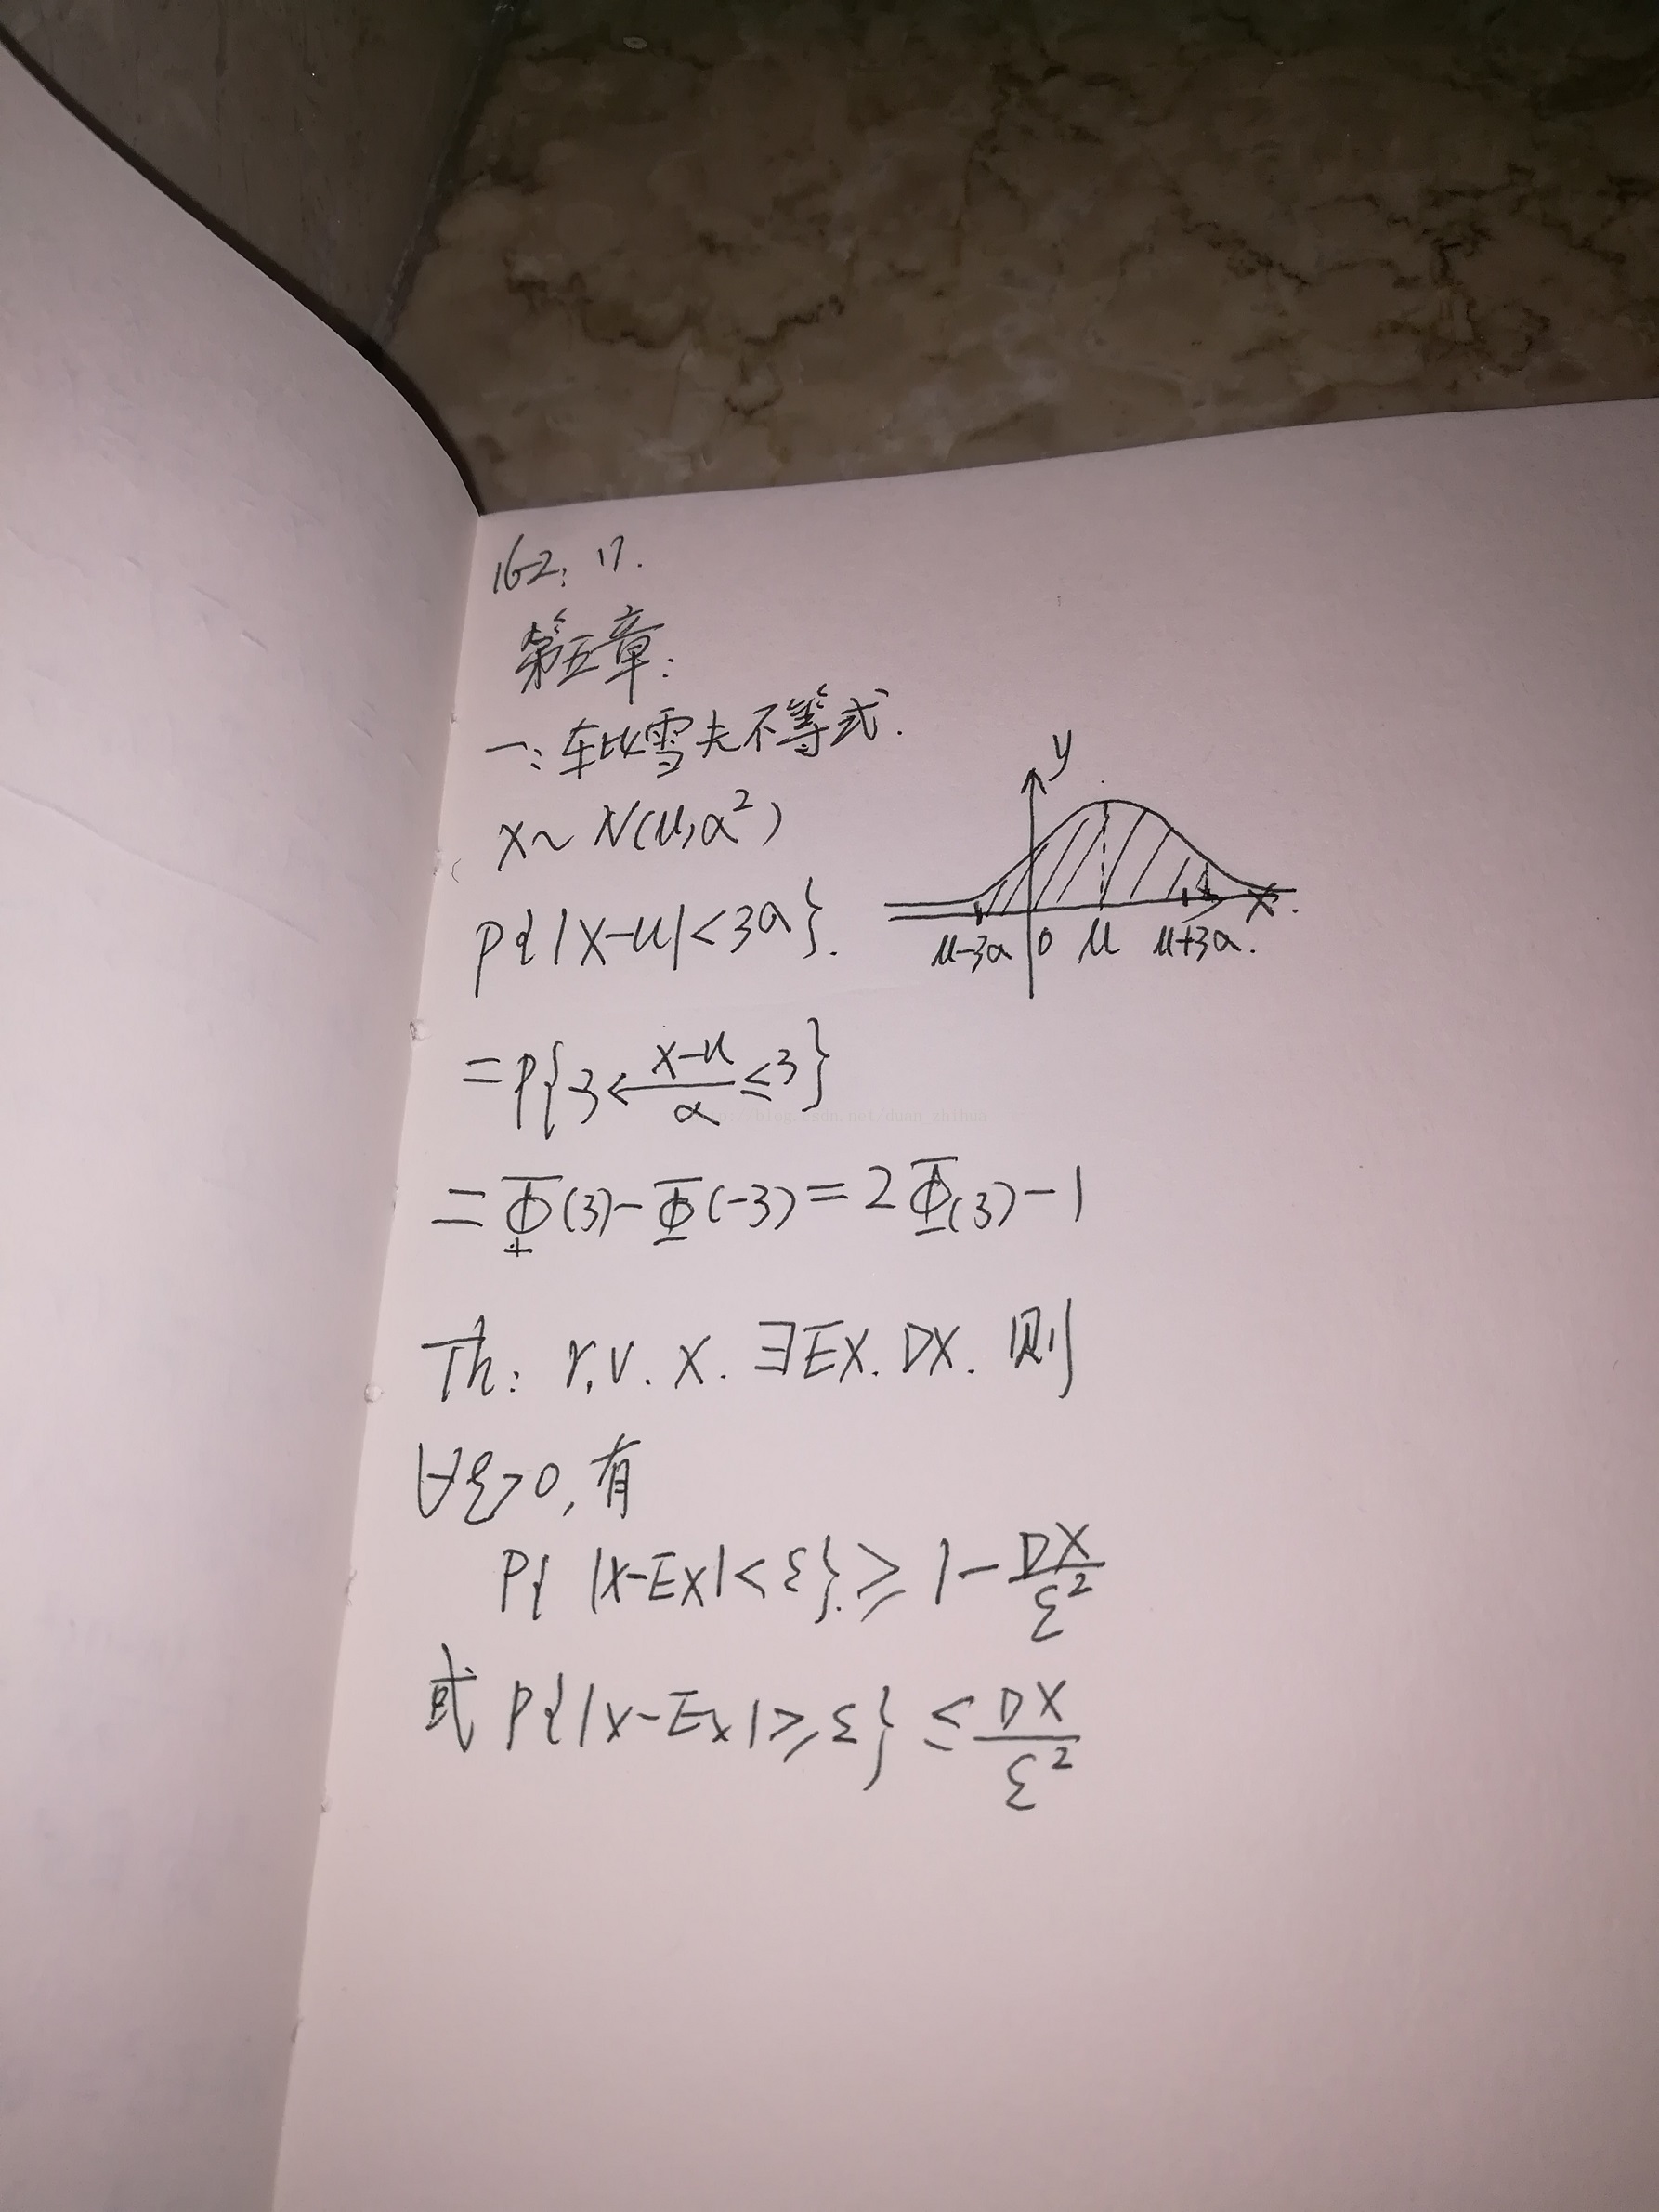 162: 17.
第五章:
一: 车比雪夫不等式.
X~N(μ,α²)
y
P{|X-μ|<3α}.
X.
μ-3α 0 μ μ+3α.
=P{-3<(X-μ)/α≤3}
http://blog.csdn.net/duan_zhihua
=Φ(3)-Φ(-3)=2Φ(3)-1
Th: r.v. X. ∃EX. DX. 则
∀ε>0,有
P{ |X-EX|<ε}.≥1-DX/ε²
或 P{|X-EX|≥ε}≤DX/ε²